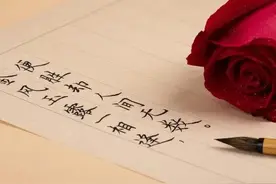 便胜却人间无数。
风玉露一相逢，